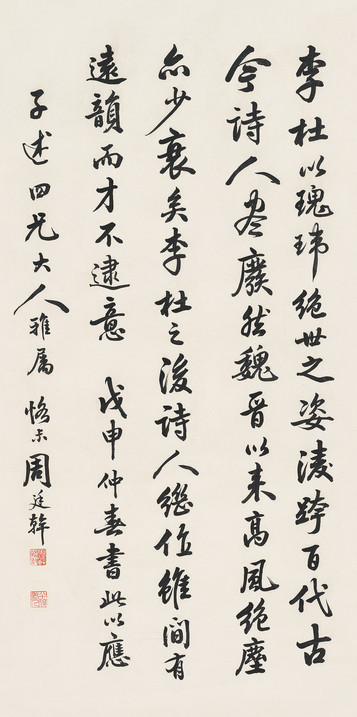 李杜以瑰瑋絕世之姿淩跨百代古
今詩人盡廢然魏晉以來高風絕塵
亦少衰矣李杜之後詩人繼作雖間有
遠韻而才不逮意　戊申仲春書此以應
子述四兄大人雅属　恪未周廷幹